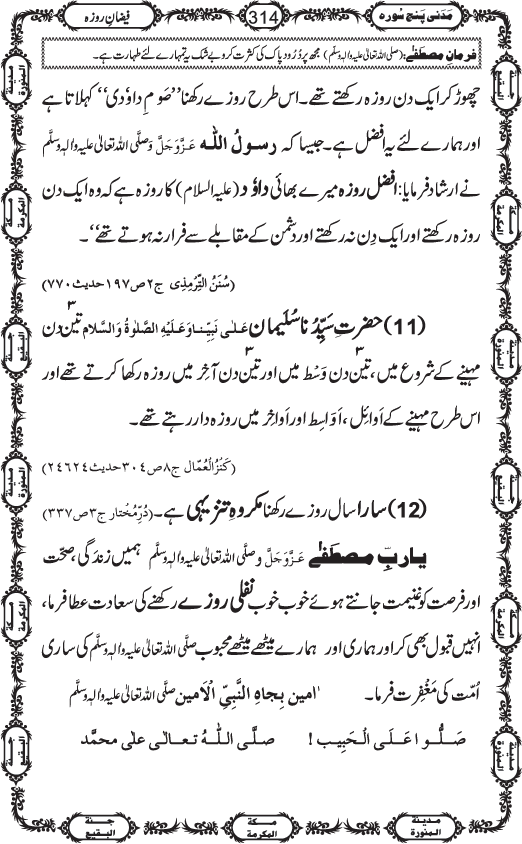 مَدَنی پنج سُورہ 314 فیضانِ روزہ
فرمانِ مصطَفٰے: (صلی اللہ تعالیٰ علیہ واٰلہٖ وسلّم) مجھ پر دُرُود پاک کی کثرت کرو بے شک یہ تمہارے لئے طہارت ہے۔
چھوڑ کر ایک دن روزہ رکھتے تھے۔ اس طرح روزے رکھنا ’’صَومِ داوٗدی‘‘ کہلاتا ہے
اور ہمارے لئے یہ افضل ہے۔ جیسا کہ رسولُ اللہ عَزَّوَجَلَّ وَ صلَّی اللہ تعالیٰ علیہ واٰلہٖ وسلَّم
نے ارشاد فرمایا: افضل روزہ میرے بھائی داوٗد (علیہ السلام) کا روزہ ہے کہ وہ ایک دن
روزہ رکھتے اور ایک دِن نہ رکھتے اور دشمن کے مقابلے سے فرار نہ ہوتے تھے‘‘۔
(سُنَنُ التِّرْمِذِی ج٢ ص١٩٧ حدیث ٧٧٠)
(11) حضرتِ سیِّدُنا سُلیمان عَلٰی نَبِیِّنا وَعَلَیْہِ الصَّلٰوۃُ وَالسَّلام تین ٣ دن
مہینے کے شروع میں، تین ٣ دن وَسْط میں اور تین ٣ دن آخِر میں روزہ رکھا کرتے تھے اور
اس طرح مہینے کے اَوائِل، اَوَاسِط اور اَواخِر میں روزہ دار رہتے تھے۔
(کَنْزُ الْعُمّال ج٨ ص٣٠٤ حدیث ٢٤٦٢٤)
(12) سارا سال روزے رکھنا مکروہِ تنزیہی ہے۔ (دُرِّمُختار ج٣ ص٣٣٧)
یا ربِّ مصطَفٰے عَزَّوَجَلَّ و صلَّی اللہ تعالیٰ علیہ واٰلہٖ وسلَّم ہمیں زندَگی، صِحّت
اور فرصت کو غنیمت جانتے ہوئے خوب خوب نفلی روزے رکھنے کی سعادت عطا فرما،
انہیں قبول بھی کر اور ہماری اور ہمارے میٹھے میٹھے محبوب صلَّی اللہ تعالیٰ علیہ واٰلہٖ وسلَّم کی ساری
اُمّت کی مَغْفِرت فرما۔ اٰمین بِجاہِ النَّبِیِّ الْاَمین صلَّی اللہ تعالیٰ علیہ واٰلہٖ وسلَّم
صَلُّوا عَلَی الْحَبِیب! صلَّی اللّٰہُ تعالٰی علٰی محمَّد
مدینۃ المنورۃ مکۃ المکرمۃ جنۃ البقیع